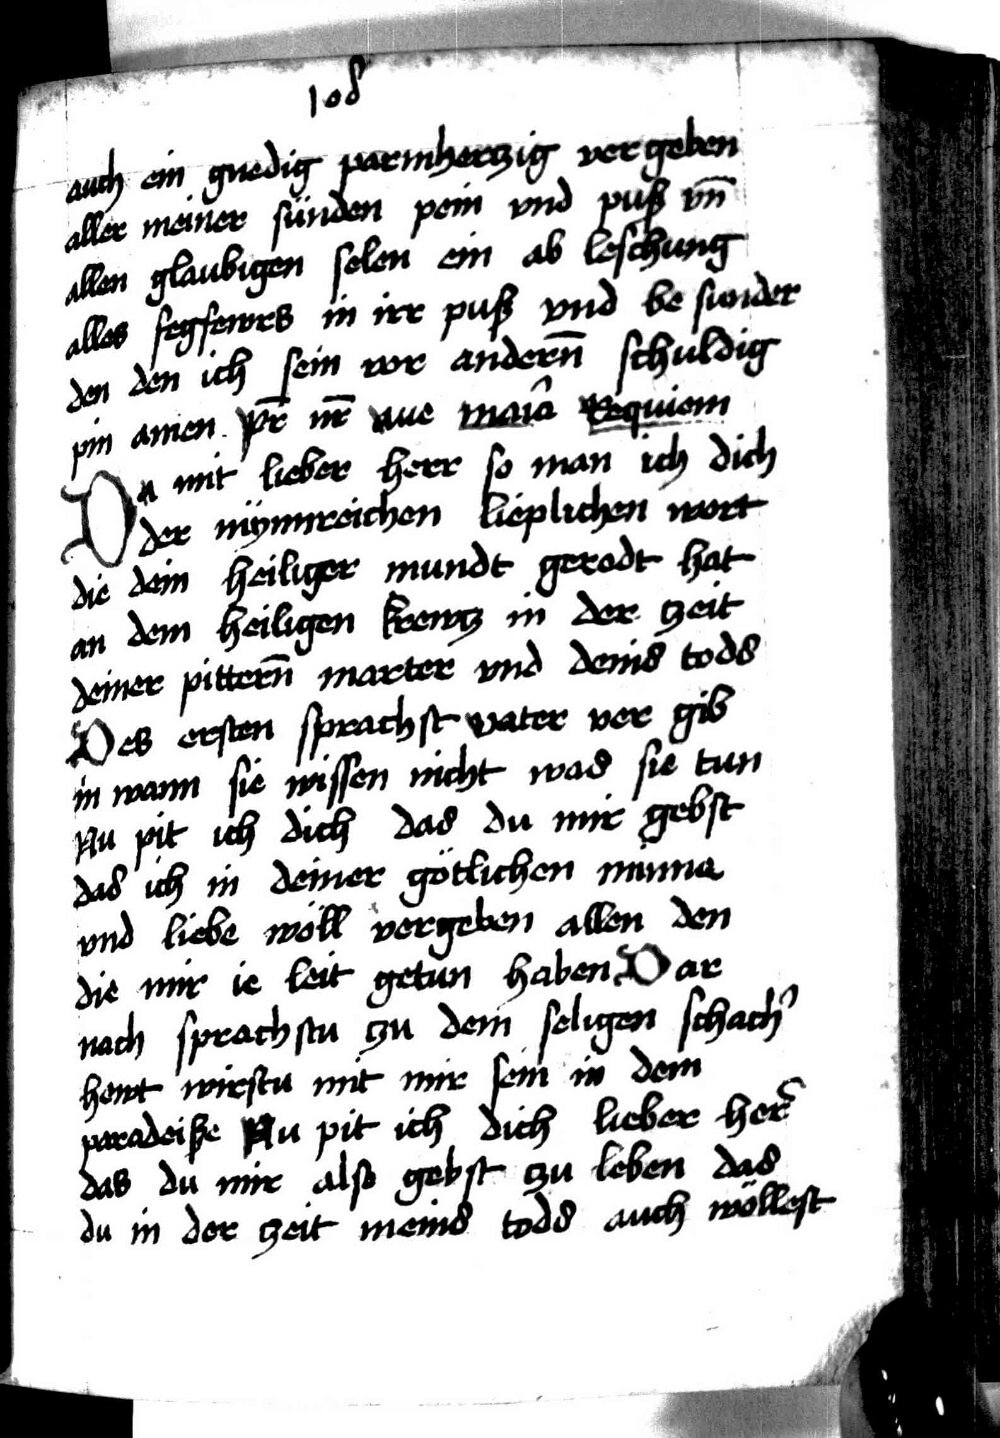 108
auch ein gnedig parmhertzig vergeben
aller meiner sünden pein vnd puß vn̄
allen glaubigen selen ein ab leschung
alles fegfewrs in irr puß vnd be sunder
den den ich sein vor andern̄ schuldig
pin amen pr̄ nr̄ aue maiâ Requiem
Da mit lieber herr so man ich dich
der mÿnnreichen lieplichen wort
die dein heiliger mundt geredt hat
an dem heiligen krewtz in der zeit
deiner pittern̄ marter vnd deins tods
Des ersten sprachst vater ver gib
in wann sie wissen nicht was sie tun
Nu pit ich dich das du mir gebst
das ich in deiner götlichen minne
vnd liebe wöll vergeben allen den
die mir ie leit getun haben Dar
nach sprachstu zu dem seligen schach'
hewt wirstu mit mir sein in dem
paradeiße Nu pit ich dich lieber her̄
das du mir also gebst zu leben das
du in der zeit meins tods auch wöllest